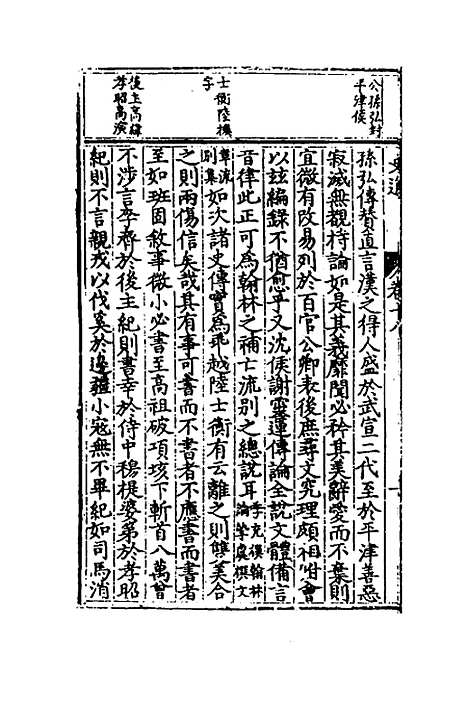 公孫弘封
平津侯
士衡陸機
字
後主高緯
孝昭高演
孫弘傳贊直言漢之得人盛於武宣二代至於平津善惡
寂滅無覩持論如是其義靡聞必矜其美辭愛而不棄則
宜微有改易列於百官公卿表後庶尋文究理頗相附會
以茲編錄不猶愈乎又沈侯謝靈運傳論全說文體備言
音律此正可為翰林之補亡流別之總說耳李充撰翰林論摯虞撰文
章流別集如次諸史傳實為乖越陸士衡有云離之則雙美合
之則兩傷信矣哉其有事可書而不書者不應書而書者
至如班固敘事微小必書至高祖破項垓下斬首八萬曾
不涉言李齊於後主紀則書幸於侍中穆提婆第於孝昭
紀則不言親戎以伐奚於邊疆小寇無不畢紀如司馬消